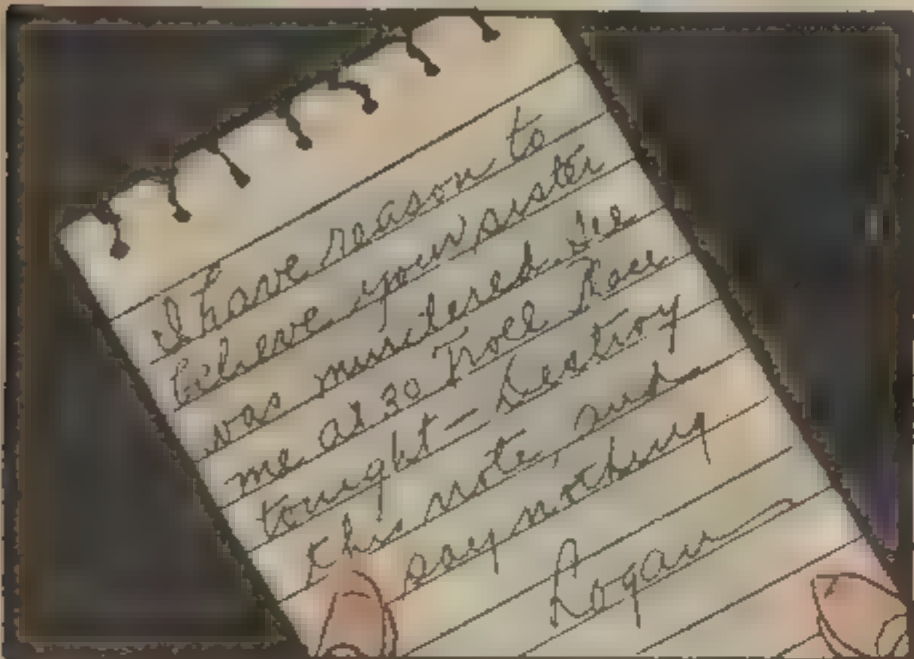 I have reason to
believe your sister
was murdered. See
me at 30 Troll Place
tonight - Destroy
this note, and
say nothing
Logan